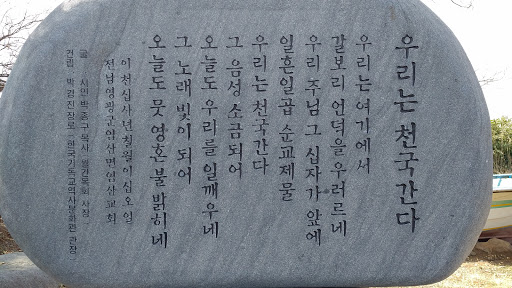 우리는 천국간다
우리는 여기에서
갈보리 언덕을 우러르네
우리 주님 그 십자가 앞에
일흔일곱 순교제물
우리는 천국간다
그 음성 소금되어
오늘도 우리를 일깨우네
그 노래 빛이 되어
오늘도 뭇 영혼 불 밝히네
이천십사년칠월이십오일
전남영광군염산면염산교회
글 시인 박종구 목사 (월간목회 사장)
건립 박경진 장로 (한국기독교역사문화관 관장)